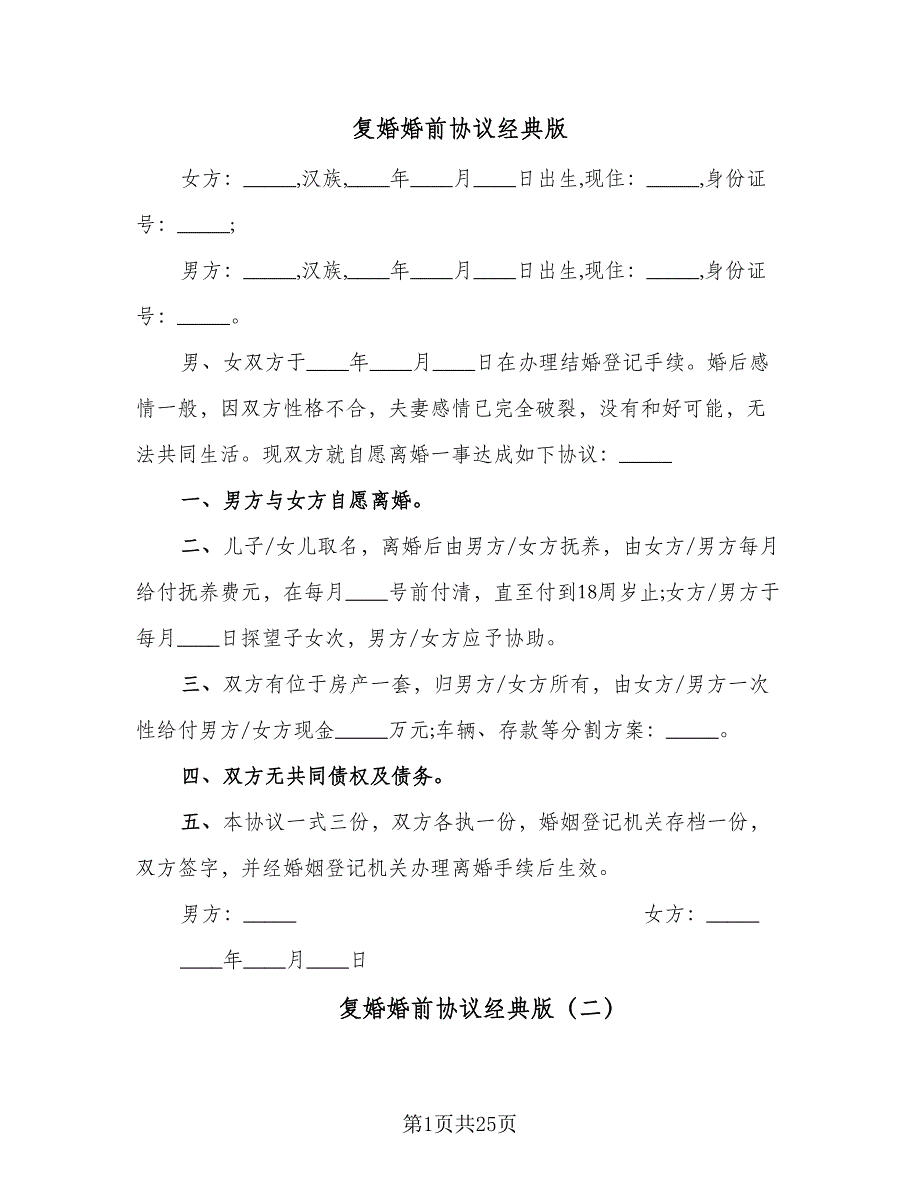 复婚婚前协议经典版
女方：_____,汉族,____年____月____日出生,现住：_____,身份证
号：_____;
男方：_____,汉族,____年____月____日出生,现住：_____,身份证
号：_____。
男、女双方于____年____月____日在办理结婚登记手续。婚后感
情一般，因双方性格不合，夫妻感情已完全破裂，没有和好可能，无
法共同生活。现双方就自愿离婚一事达成如下协议：_____
一、男方与女方自愿离婚。
二、儿子/女儿取名，离婚后由男方/女方抚养，由女方/男方每月
给付抚养费元，在每月____号前付清，直至付到18周岁止;女方/男方于
每月____日探望子女次，男方/女方应予协助。
三、双方有位于房产一套，归男方/女方所有，由女方/男方一次
性给付男方/女方现金_____万元;车辆、存款等分割方案：_____。
四、双方无共同债权及债务。
五、本协议一式三份，双方各执一份，婚姻登记机关存档一份，
双方签字，并经婚姻登记机关办理离婚手续后生效。
男方：_____ 女方：_____
____年____月____日
复婚婚前协议经典版（二）
第1页共25页